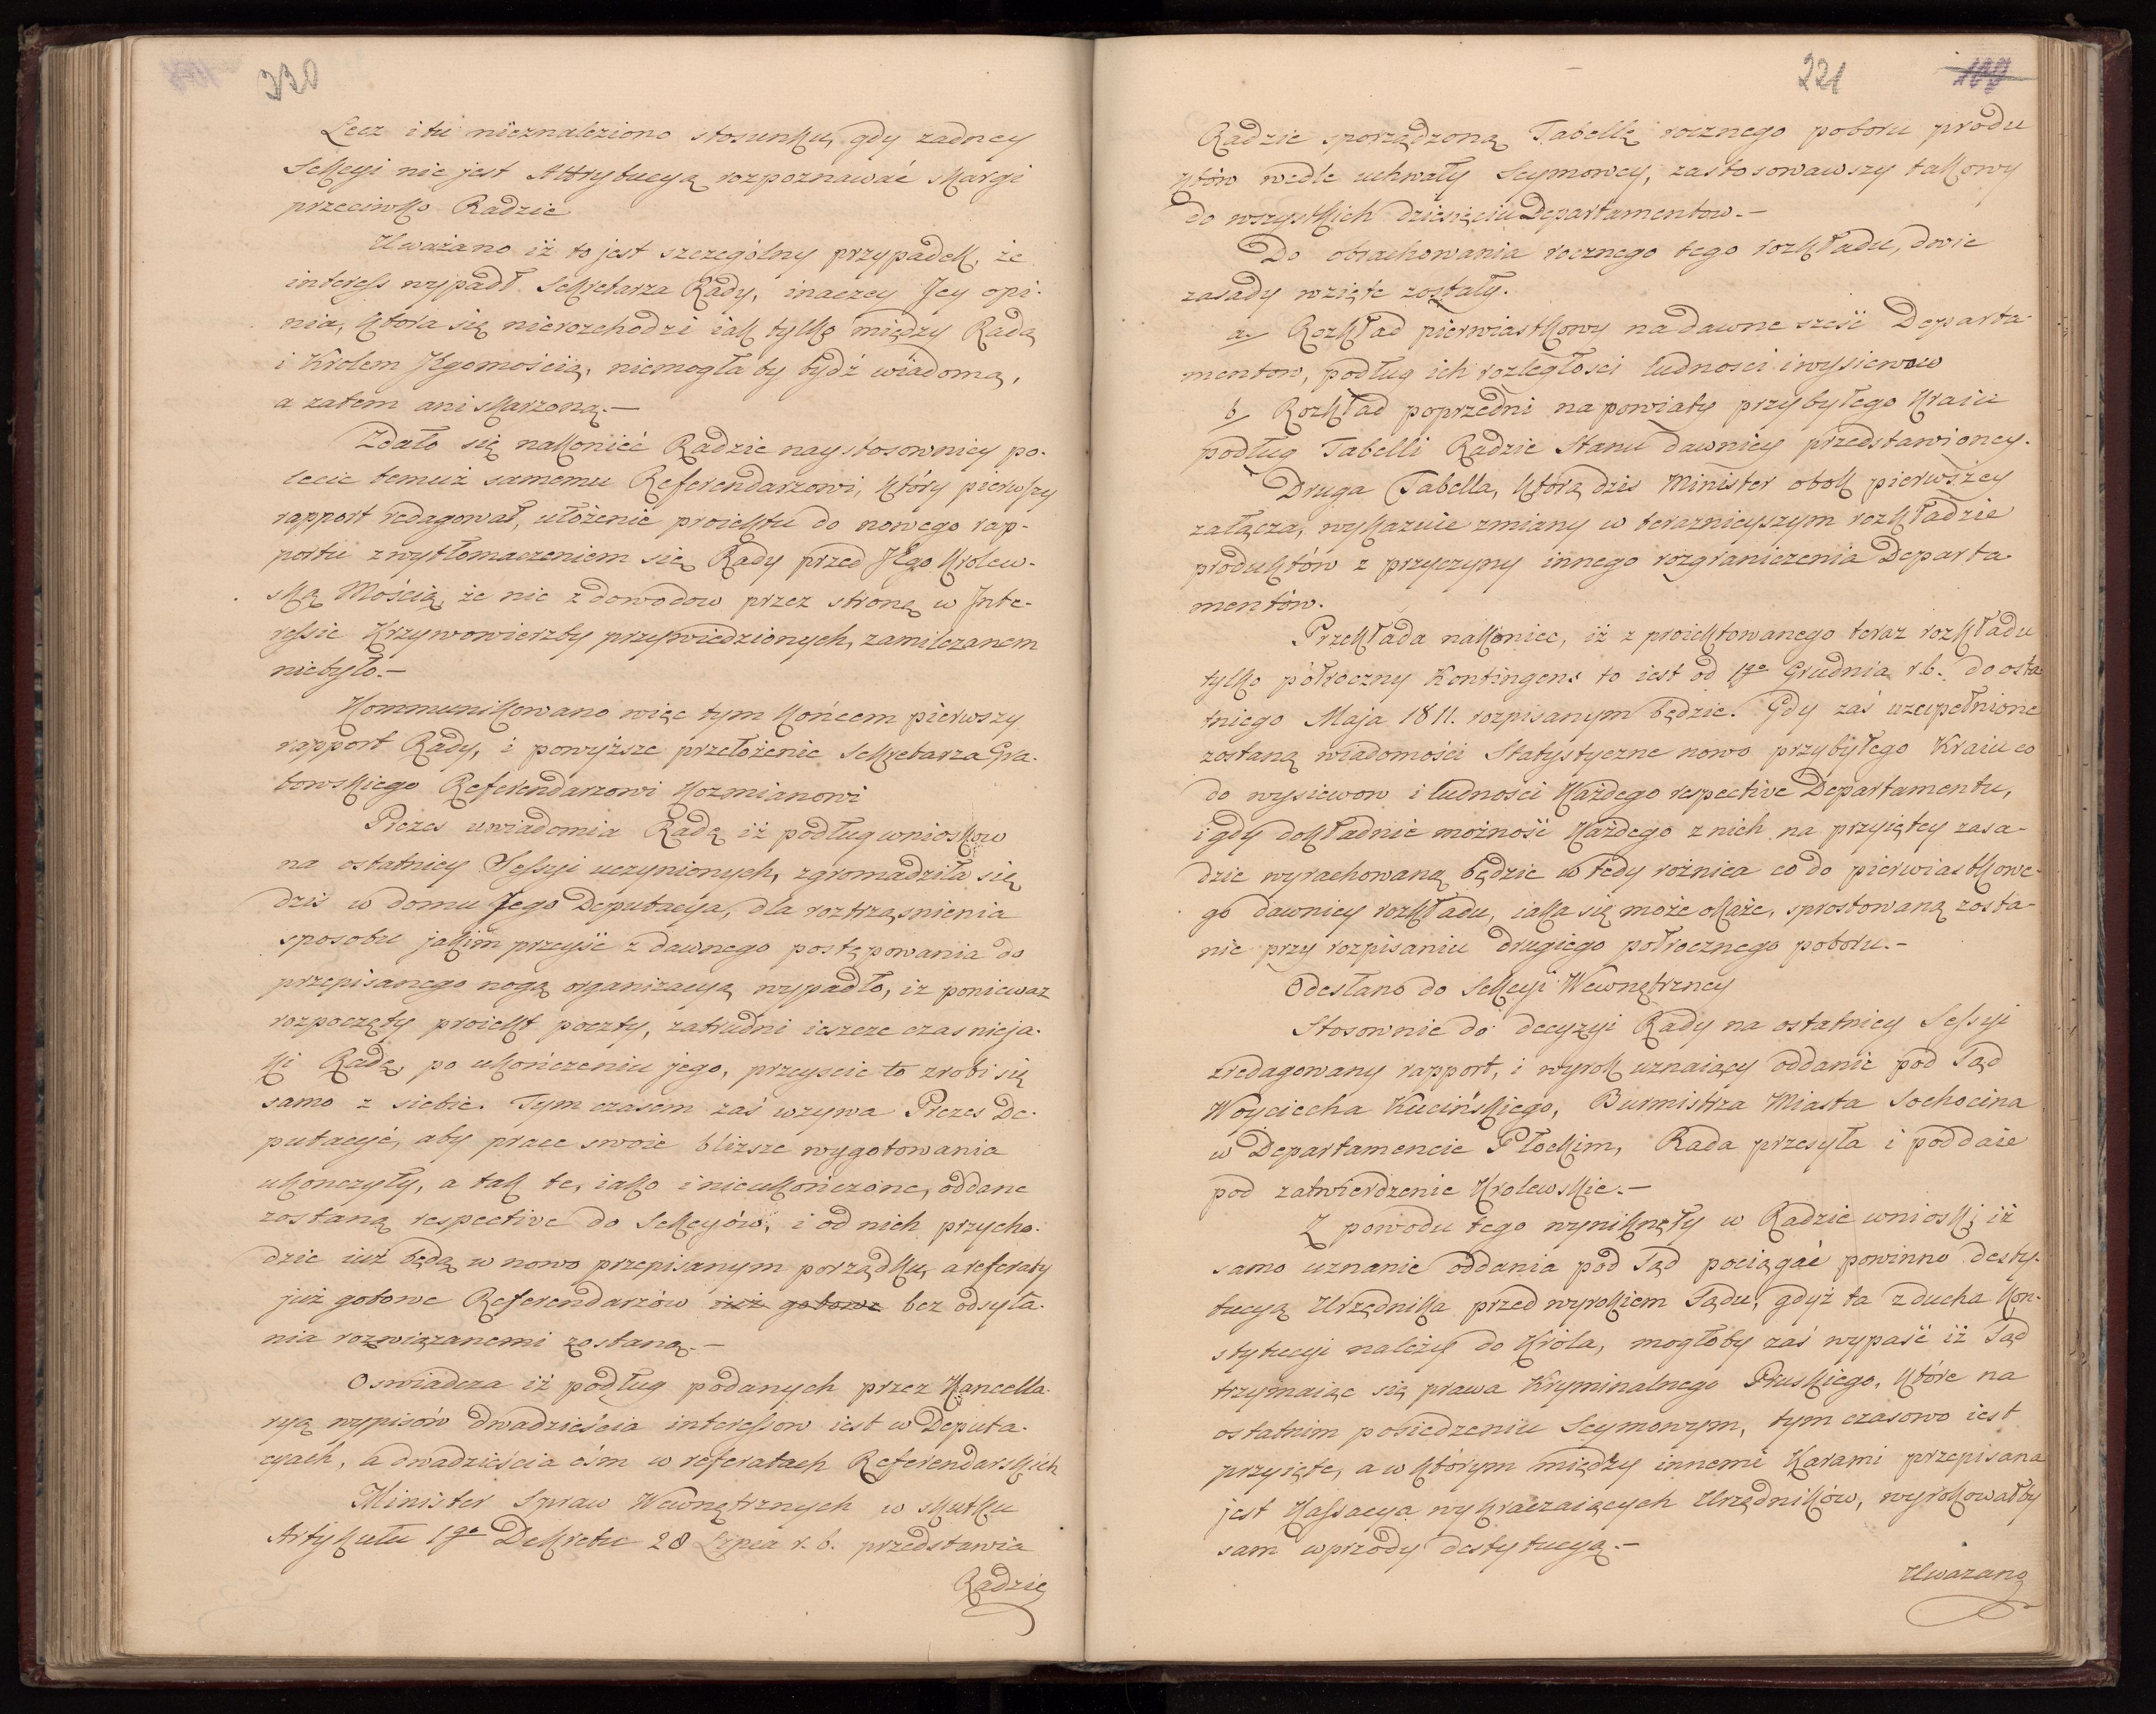 220
Lecz i tu nieznaleziono stosunku, gdy zadney
Sekcyi nie jest Attrybucyą rozpoznawać skargi
przeciwko Radzie
Uważano iż to jest szczególny przypadek, że
interess wypadł Sekretarza Rady, inaczey Jey opi-
nia, ktora się nierozchodzi iak tylko między Radą
i Krolem Jgomością, niemogła by bydź wiadomą,
a zatem ani skarzoną.—
Zdało się nakoniec Radzie naystosowniey po-
lecic temuż samemu Referendarzowi, który pierwszy
rapport redagował, ułożenie proiektu do nowego rap-
portu z wytłomaczeniem się Rady przed JEgo Krolew-
ską Mością, że nic z dowodow przez stronę w Inte-
ressie Krzywowierzby przywiedzionych, zamilczanem
niebyło.—
Kommunikowano więc tym końcem pierwszy
rapport Rady, i powyższe przełożenie Sekretarza Gra-
bowskiego Referendarzowi Kozmianowi
Prezes uwiadomia Radę iż podług wnioskow
na ostatniey Sessyi uczynionych, zgromadziła się
dzis w domu Jego Deputacya, dla roztrząsnienia
sposobu jakim przeyść z dawnego postępowania do
przepisanego nową organizacyą wypadło, iz poniewaz
rozpoczęty proiekt poczty, zatrudni ieszcze czas nieja-
ki Radę, po ukończeniu jego, przeyscie to zrobi się
samo z siebie. Tym czasem zaś wzywa Prezes De-
putacyie, aby prace swoie bliższe wygotowania
ukonczyły, a tak te, iako i nieukończone, oddane
zostaną respective do Sekcyów, i od nich przycho-
dzic iuż będą w nowo przepisanym porządku, a referaty
już gotowe Referendarzów iuż gotowe bez odsyła-
nia rozwiązanemi zostaną.—
Oswiadcza iż podług podanych przez Kancella-
ryą wypisów dwadzieścia interessow iest w Deputa-
cyach, a dwadzieścia ośm w referatach Referendarskich
Minister Spraw Wewnętrznych w skutku
Artykułu 1go Dekretu 28 Lipca r. b. przedstawia
Radzie
221
109
Radzie sporządzoną Tabellę rocznego poboru produ
któw wedle uchwały Seymowey, zastosowawszy takowy
do wszystkich dziesięciu Departamentow.—
Do obrachowania rocznego tego rozkładu, dwie
zasady wzięte zostały.
a. Rozkład pierwiastkowy na dawne sześć Departa-
mentow, podług ich rozległosci ludnosci i wysiewow
b. Rozkład poprzedni na powiaty przybyłego Kraiu
podług Tabelli Radzie Stanu dawniey przedstawioney.
Druga Tabella, którą dzis Minister obok pierwszey
załącza, wykazuie zmiany w teraznieyszym rozkładzie
produktów z przyczyny innego rozgraniczenia Departa-
mentów.
Przekłada nakoniec, iż z proiektowanego teraz rozkładu
tylko półroczny Kontingens to iest od 1go Grudnia r. b. do osta-
tniego Maja 1811. rozpisanym będzie. Gdy zaś uzupełnione
zostaną wiadomości Statystyczne nowo przybyłego Kraiu co
do wysiewow i ludnosci Każdego respective Departamentu,
i gdy dokładnie możność Każdego z nich na przyiętey zasa-
dzie wyrachowaną będzie w tedy rożnica co do pierwiastkowe-
go dawniey rozkładu, iaka się może okaże, sprostowaną zosta-
nie przy rozpisaniu drugiego połrocznego poboru.—
Odesłano do Sekcyi Wewnętrzney
Stosownie do decyzyi Rady na ostatniey Sessyi
zredagowany rapport, i wyrok uznaiący oddanie pod Sąd
Woyciecha Kucińskiego, Burmistrza Miasta Sochocina
w Departamencie Płockim, Rada przesyła i poddaie
pod zatwierdzenie Krolewskie.—
Z powodu tego wyniknęły w Radzie wnioski, iż
samo uznanie oddania pod Sąd pociągać powinno desty-
tucyą Urzędnika przed wyrokiem Sądu, gdyż ta z ducha Kon-
stytucyi należy do Króla, mogłoby zaś wypaść iż Sąd
trzymaiąc się prawa Kryminalnego Pruskiego, które na
ostatnim posiedzeniu Seymowym, tym czasowo iest
przyięte, a w którym między innemi Karami przepisana
jest Kassacya wykraczaiących Urzędników, wyrokowałby
sam wprzody destytucyą.—
Uwazano